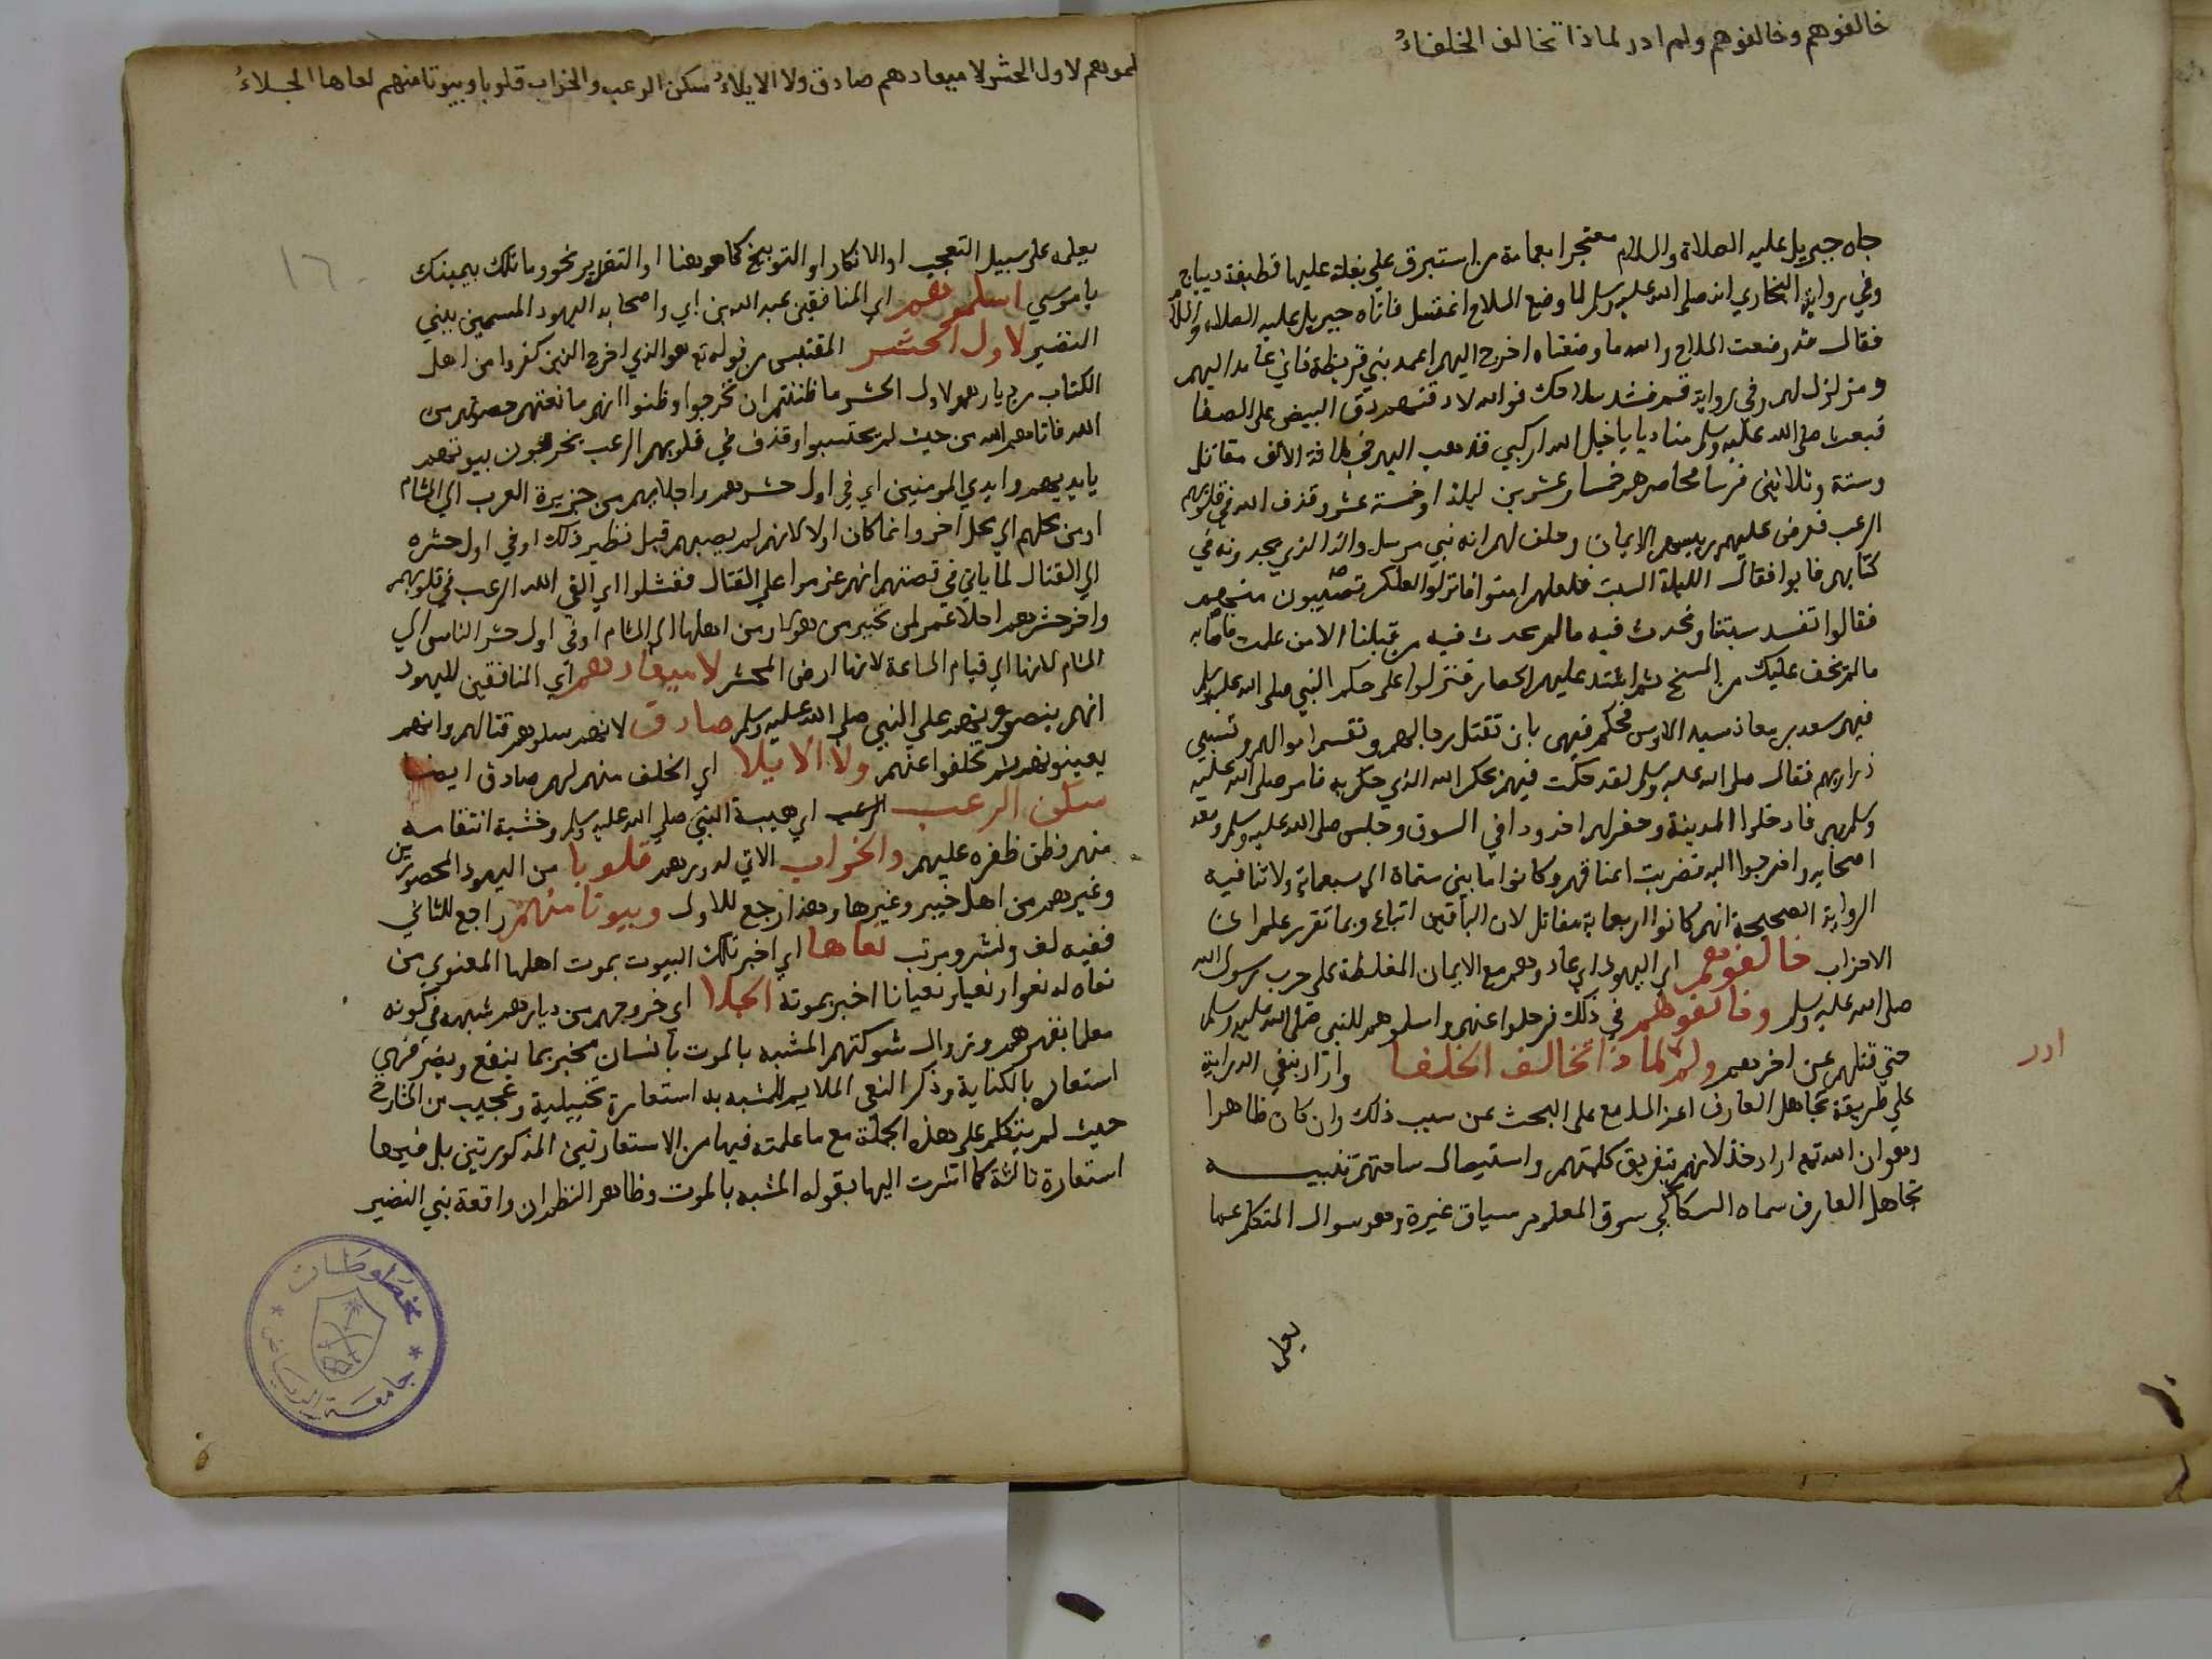 خالفوهم وخالفوهم ولم ادر لماذا تخالف الخلفاءُ
جاه جبريل عليه الصلاة والسلام معتجرا بعمامة من استبرق علي بغلة عليها قطيفة ديباج
وفي رواية البخاري انه صلى الله عليه وسلم لما وضع السلاح اغتسل فاتاه جبريل عليه الصلاة والسلام
فقال قد وضعت السلاح والله ما وضعناه اخرج اليهم اعمد بني قريظة فاني عامد اليهم
ومزلزل لهم وفي رواية قم فشد سلاحك فوالله لادقنهم دق البيض على الصفا
فبعث صلى الله عليه وسلم مناديا يا خيل الله اركبي فذهب اليهم في ثلاثة الاف مقاتل
وستة وثلاثين فرسا فحاصرهم خمسا وعشرين ليلة او خمسة عشر وقذف الله في قلوبهم
الرعب فعرض عليهم رييسهم الايمان وحلف لهم انه نبي مرسل وانه الذي يجدونه في
كتابهم فابوا فقال الليلة السبت فلعلهم امنوا فانزلوا لعلكم تصيبون منهم
فقالوا تفسد سبتنا وتحدث فيه ما لم يحدث فيه من قبلنا الا من علمت فاصابه
ما لم يخف عليك من المسخ ثم اشتد عليهم الحصار فنزلوا على حكم النبي صلى الله عليه وسلم
فيهم سعد بن معاذ سيد الاوس فحكم فيهم بان تقتل رجالهم وتقسم اموالهم وتسبي
ذراريهم فقال صلى الله عليه وسلم لقد حكمت فيهم بحكم الله الذي حكم به فامر صلى الله عليه
وسلم بهم فادخلوا المدينة وحفر لهم اخدودا في السوق وجلس صلى الله عليه وسلم ومعه
اصحابه واخرجوا اليه فضربت اعناقهم وكانوا ما بين ستماة الى سبعماية ولا تنافيه
الرواية الصحيحة انهم كانوا اربعماية مقاتل لان الباقين اتباع وبما تقرر علم ان
الاحزاب خالفوهم اي اليهود اي عاهدوهم مع الايمان المغلظة على حرب رسول الله
صلى الله عليه وسلم وخالفوهم في ذلك فرحلوا عنهم واسلموهم للنبي صلى الله عليه وسلم
حتى قتلهم عن اخرهم ولم لماذا تخالف الخلفا واراد بنفي الدراية
ادر
علي طريقة تجاهل العارف اعز السامع على البحث عن سبب ذلك وان كان ظاهرا
وهو ان الله تع اراد خذلانهم بتفريق كلمتهم واستيصال ساحتهم تنبيه
تجاهل العارف سماه السكاكي سوق المعلوم سياق غيره وهو سوال المتكلم عما
يعلمه
لموهم لاول الحشر لا ميعادهم صادق ولا الايلاءُ سكن الرعب والخراب قلوبا وبيوتا منهم نعاها الجلاءُ
١٦
يعلمه على سبيل التعجب او الانكار او التوبيخ كما هو هنا او التقرير نحو وما تلك بيمينك
يا موسي اسلموهم اي المنافقين عبد الله بن ابي واصحابه اليهود المسمين ببني
النضير لاول الحشر المقتبس من قوله تع هو الذي اخرج الذين كفروا من اهل
الكتاب من ديارهم لاول الحشر ما ظننتم ان يخرجوا وظنوا انهم مانعتهم حصونهم من
الله فاتاهم الله من حيث لم يحتسبوا وقذف في قلوبهم الرعب يخربون بيوتهم
بايديهم وايدي المومنين اي في اول حشرهم واجلايهم من جزيرة العرب الي الشام
او من محلهم الي محل اخر وانما كان اولا لانهم لم يصبهم قبل نظير ذلك او في اول حشره
الي القتال لما ياتي في قصتهم انهم عزموا على القتال ففشلوا اي القي الله الرعب في قلوبهم
واخر حشرهم اجلا عمر لمن بخيبر من هولا ومن اهلها الى الشام او في اول حشر الناس الي
الشام لانها الي قيام الساعة لانها ارض المحشر لا ميعادهم اي المنافقين لليهود
انهم ينصرونهم على النبي صلى الله عليه وسلم صادق لانهم وعدوهم قتالهم وانهم
يعينونهم ثم تخلفوا عنهم ولا الايلا اي الحلف منهم لهم صادق ايضا
سكن الرعب الرعب اي هيبة النبي صلى الله عليه وسلم وخشية انتقامه
منهم وظن ظفره عليهم والخراب الاتي لدورهم قلوبا من اليهود المحصورين
وغيرهم من اهل خيبر وغيرها وهذا رجع للاول وبيوتا منهم راجع للثاني
ففيه لف ونشر مرتب نعاها اي اخبر تلك البيوت بموت اهلها المعنوي من
نعاه له نعوا ونعيا ونعيانا اخبر بموته الجلا اي خروجهم من ديارهم شبهه في كونه
معلما بقهرهم وزوال شوكتهم المشبه بالموت بانسان مخبر بما ينفع ويضر فهي
استعارة بالكناية وذكر النعي الملايم للمشبه به استعارة تخييلية وعجيب من الشارح
حيث لم يتكلم على هذه الجملة مع ما علمته فيها من الاستعارتين المذكورتين بل فيها
استعارة ثالثة كما اشرت اليها بقوله المشبه بالموت وظاهر النظم ان واقعة بني النضير
مخطوطات
جامعة الرياض